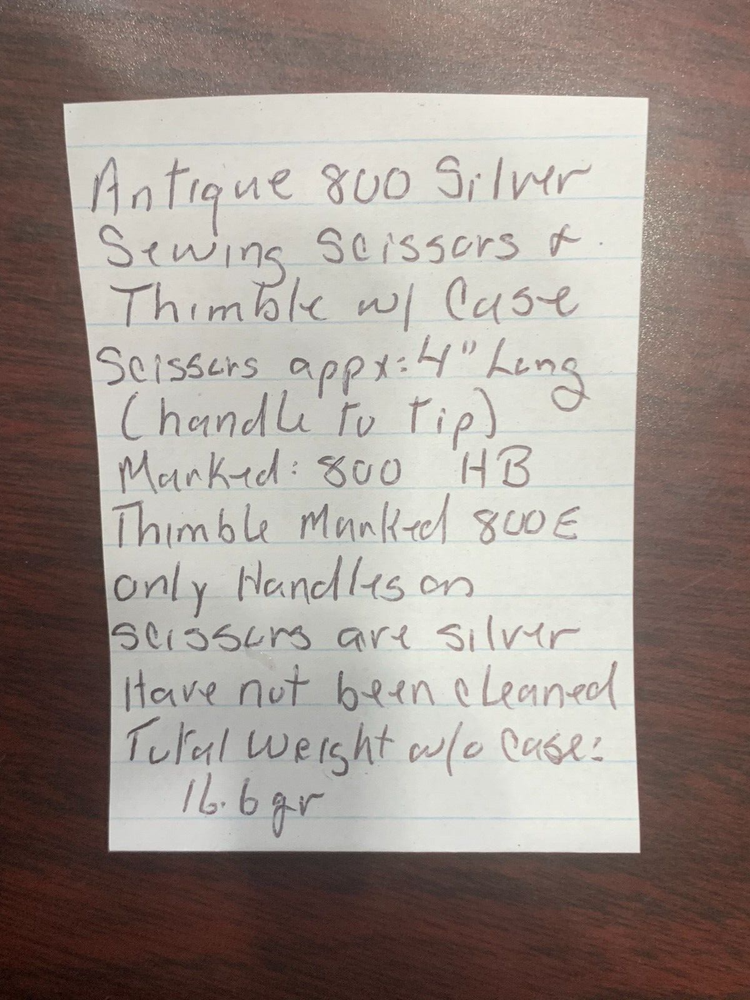 Antique 800 Silver
Sewing Scissors &
Thimble w/ Case
Scissors appx: 4" Long
(handle to tip)
Marked: 800 HB
Thimble Marked 800E
only Handles on
scissors are silver
Have not been cleaned
Total Weight w/o Case:
16.6 gr